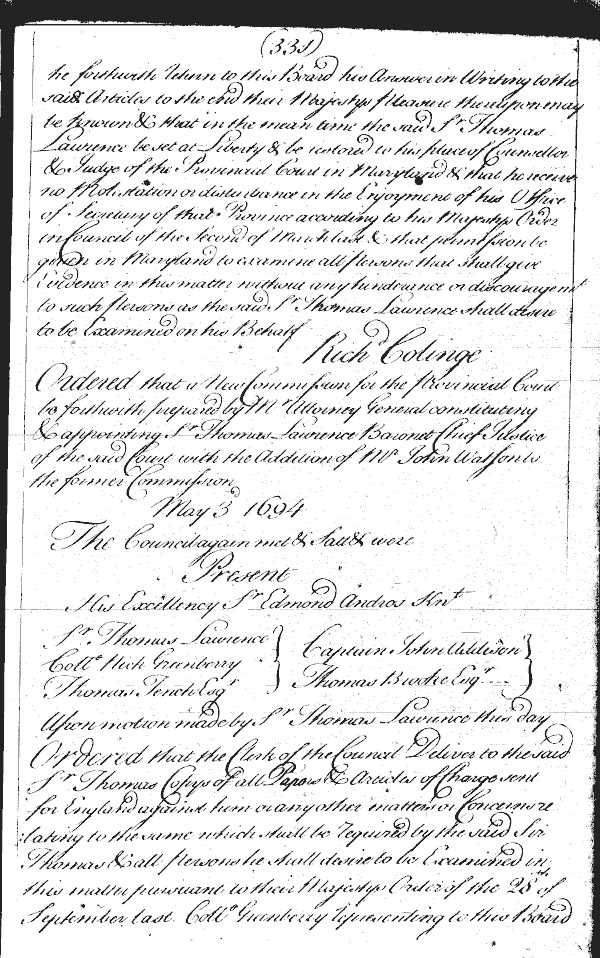 (331)
he forthwith return to this Board his Answer in Writing to the
said Articles to the end their Majestys Pleasure thereupon may
be known & that in the mean time the said Sr. Thomas
Lawrence be set at Liberty & be restored to his place of Counsellor
& Judge of the Provincial Court in Maryland & that he receive
no Molestation or disturbance in the Enjoyment of his Office
of Secretary of that Province according to his Majestys Order
in Council of the Second of March last & that permission be
given in Maryland to examine all Persons that shall give
Evidence in this matter without any hindrance or discouragemt
to such Persons as the said Sr. Thomas Lawrence shall desire
to be Examined on his Behalf
Richd Colinge
Ordered that a New Commission for the Provincial Court
be forthwith prepared by Mr Attorney General constituting
& appointing Sr Thomas Lawrence Baronet Chief Justice
of the said Court with the Addition of Mr John Watson to
the former Commission
May 3d 1694
The Council again met & Satt & were
Present
His Excellency Sr Edmond Andros Knt
Sr. Thomas Lawrence
Collo Nich Greenberry
Thomas Tench Esqr
Captain John Addison
Thomas Brooke Esqr
Upon motion made by Sr Thomas Lawrence this day
Ordered that the Clerk of the Council Deliver to the said
Sr Thomas Copys of all Papers & Articles of Charge sent
for England against him or any other matters or Concerns re
lating to the same which shall be required by the said Sir
Thomas & all Persons he shall desire to be Examined in
this matter pursuant to their Majestys Order of the 28th of
September last Collo Greenberry representing to this Board